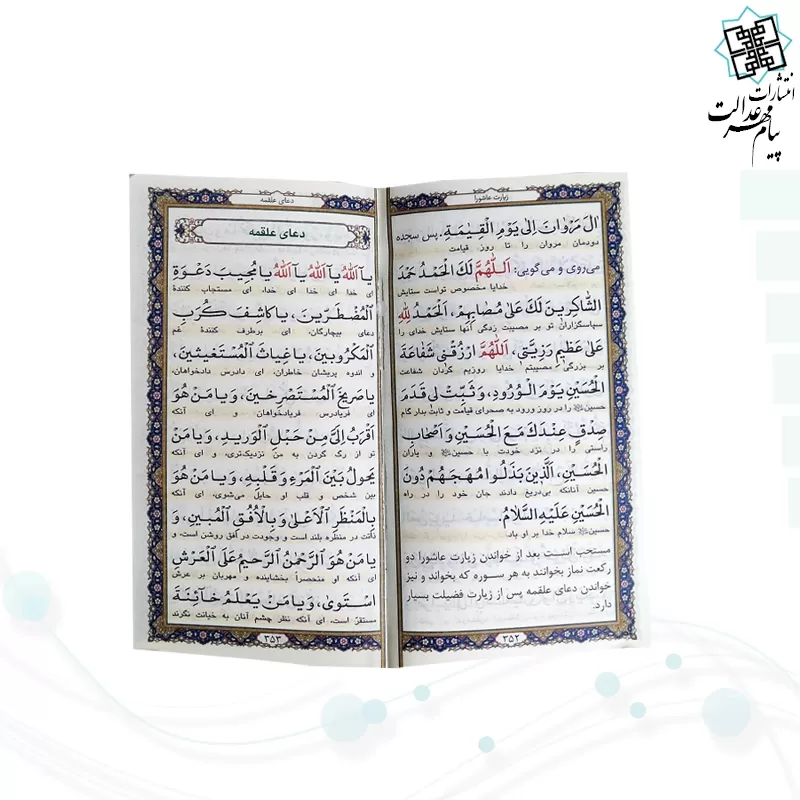 انتشارات
پیام مهر عدالت
زیارت عاشورا
اٰلَ مَرْوٰانَ اِلىٰ يَوْمِ الْقِيٰمَةِ. پس سجده
دودمان مروان را تا روز قیامت
می‌روی و می‌گویی: اَللّٰهُمَّ لَكَ الْحَمْدُ حَمْدَ
خدایا مخصوص تواست ستایش
الشّٰاكِرينَ لَكَ عَلىٰ مُصٰابِهِمْ، اَلْحَمْدُ لِلّٰهِ
سپاسگزاران تو بر مصیبت زدگی آنها ستایش خدای را
عَلىٰ عَظيمِ رَزِيَّتي، اَللّٰهُمَّ ارْزُقْني شَفٰاعَةَ
بر بزرگی مصیبتم خدایا روزیم گردان شفاعت
الْحُسَيْنِ يَوْمَ الْوُرُودِ، وَ ثَبِّتْ لي قَدَمَ
حسین را در روز ورود به صحرای قیامت و ثابت بدار گام
صِدْقٍ عِنْدَكَ مَعَ الْحُسَيْنِ وَ اَصْحٰابِ
راستی را در نزد خودت با حسین و یاران
الْحُسَيْنِ، اَلَّذينَ بَذَلُوا مُهَجَهُمْ دُونَ
حسین آنانکه بی‌دریغ دادند جان خود را در راه
الْحُسَيْنِ عَلَيْهِ السَّلٰامُ.
حسین سلام خدا بر او باد.
مستحب است بعد از خواندن زیارت عاشورا دو
رکعت نماز بخوانند به هر سوره که بخواند و نیز
خواندن دعای علقمه پس از زیارت فضیلت بسیار
دارد.
۳۵۲
دعای علقمه
دعای علقمه
يٰا اَللّٰهُ يٰا اَللّٰهُ يٰا اَللّٰهُ يٰا مُجيبَ دَعْوَةِ
ای خدا ای خدا ای خدا، ای مستجاب کنندهٔ
الْمُضْطَرّينَ، يٰا كٰاشِفَ كُرَبِ
دعای بیچارگان، ای برطرف کنندهٔ غم
الْمَكْرُوبينَ، يٰا غِيٰاثَ الْمُسْتَغيثينَ،
و اندوه پریشان خاطران، ای دادرس دادخواهان،
يٰا صَريخَ الْمُسْتَصْرِخينَ، وَ يٰا مَنْ هُوَ
ای فریادرس فریادخواهان و ای آنکه
اَقْرَبُ اِلَيَّ مِنْ حَبْلِ الْوَريدِ، وَ يٰا مَنْ
تو از رگ گردن به من نزدیک‌تری، و ای آنکه
يَحُولُ بَيْنَ الْمَرْءِ وَ قَلْبِهِ، وَ يٰا مَنْ هُوَ
بین شخص و قلب او حایل می‌شوی، ای آنکه
بِالْمَنْظَرِ الْاَعْلىٰ وَ بِالْاُفُقِ الْمُبينِ، وَ
ذاتت در منظره بلند است و وجودت در افق روشن است، و
يٰا مَنْ هُوَ الرَّحْمٰنُ الرَّحيمُ عَلَى الْعَرْشِ
ای آنکه او منحصراً بخشاینده و مهربان بر عرش
اسْتَوىٰ، وَ يٰا مَنْ يَعْلَمُ خٰائِنَةَ
مستقر است، ای آنکه نظر چشم آنان به خیانت نگرند
۳۵۳